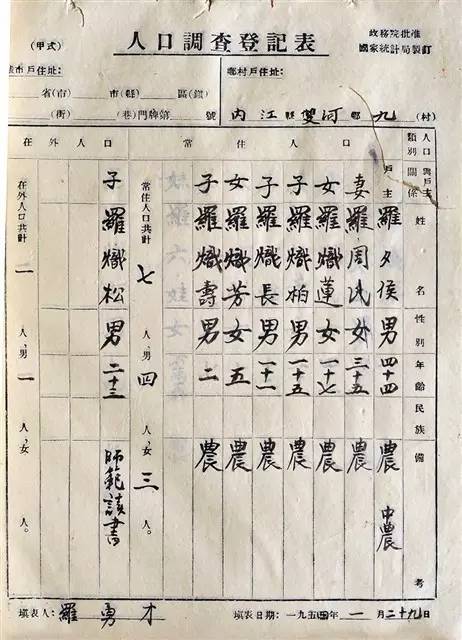 (甲式)
人口調查登記表
政務院批准
國家統計局製訂
市戶住址:
省(市) 市(縣) 區(鎮)
(街) (巷)門牌第 號
鄉村戶住址:
內江縣雙河鄉九(村)
人口類別
與戶主關係 姓名 性別 年齡 民族 備考
常住人口
戶主 羅夕侯 男 四十四 農 中農
妻 羅周氏 女 三十五 農
女 羅熾蓮 女 一十七 農
子 羅熾柏 男 一十五 農
子 羅熾長 男 一十一 農
女 羅熾芳 女 五 農
子 羅熾壽 男 二 農
常住人口共計 七 人,男 四 人,女 三 人。
在外人口
子 羅熾松 男 二十三 師範讀書
在外人口共計 一 人,男 一 人,女 人。
填表人:羅勇才
填表日期:一九五四年一月二十九日